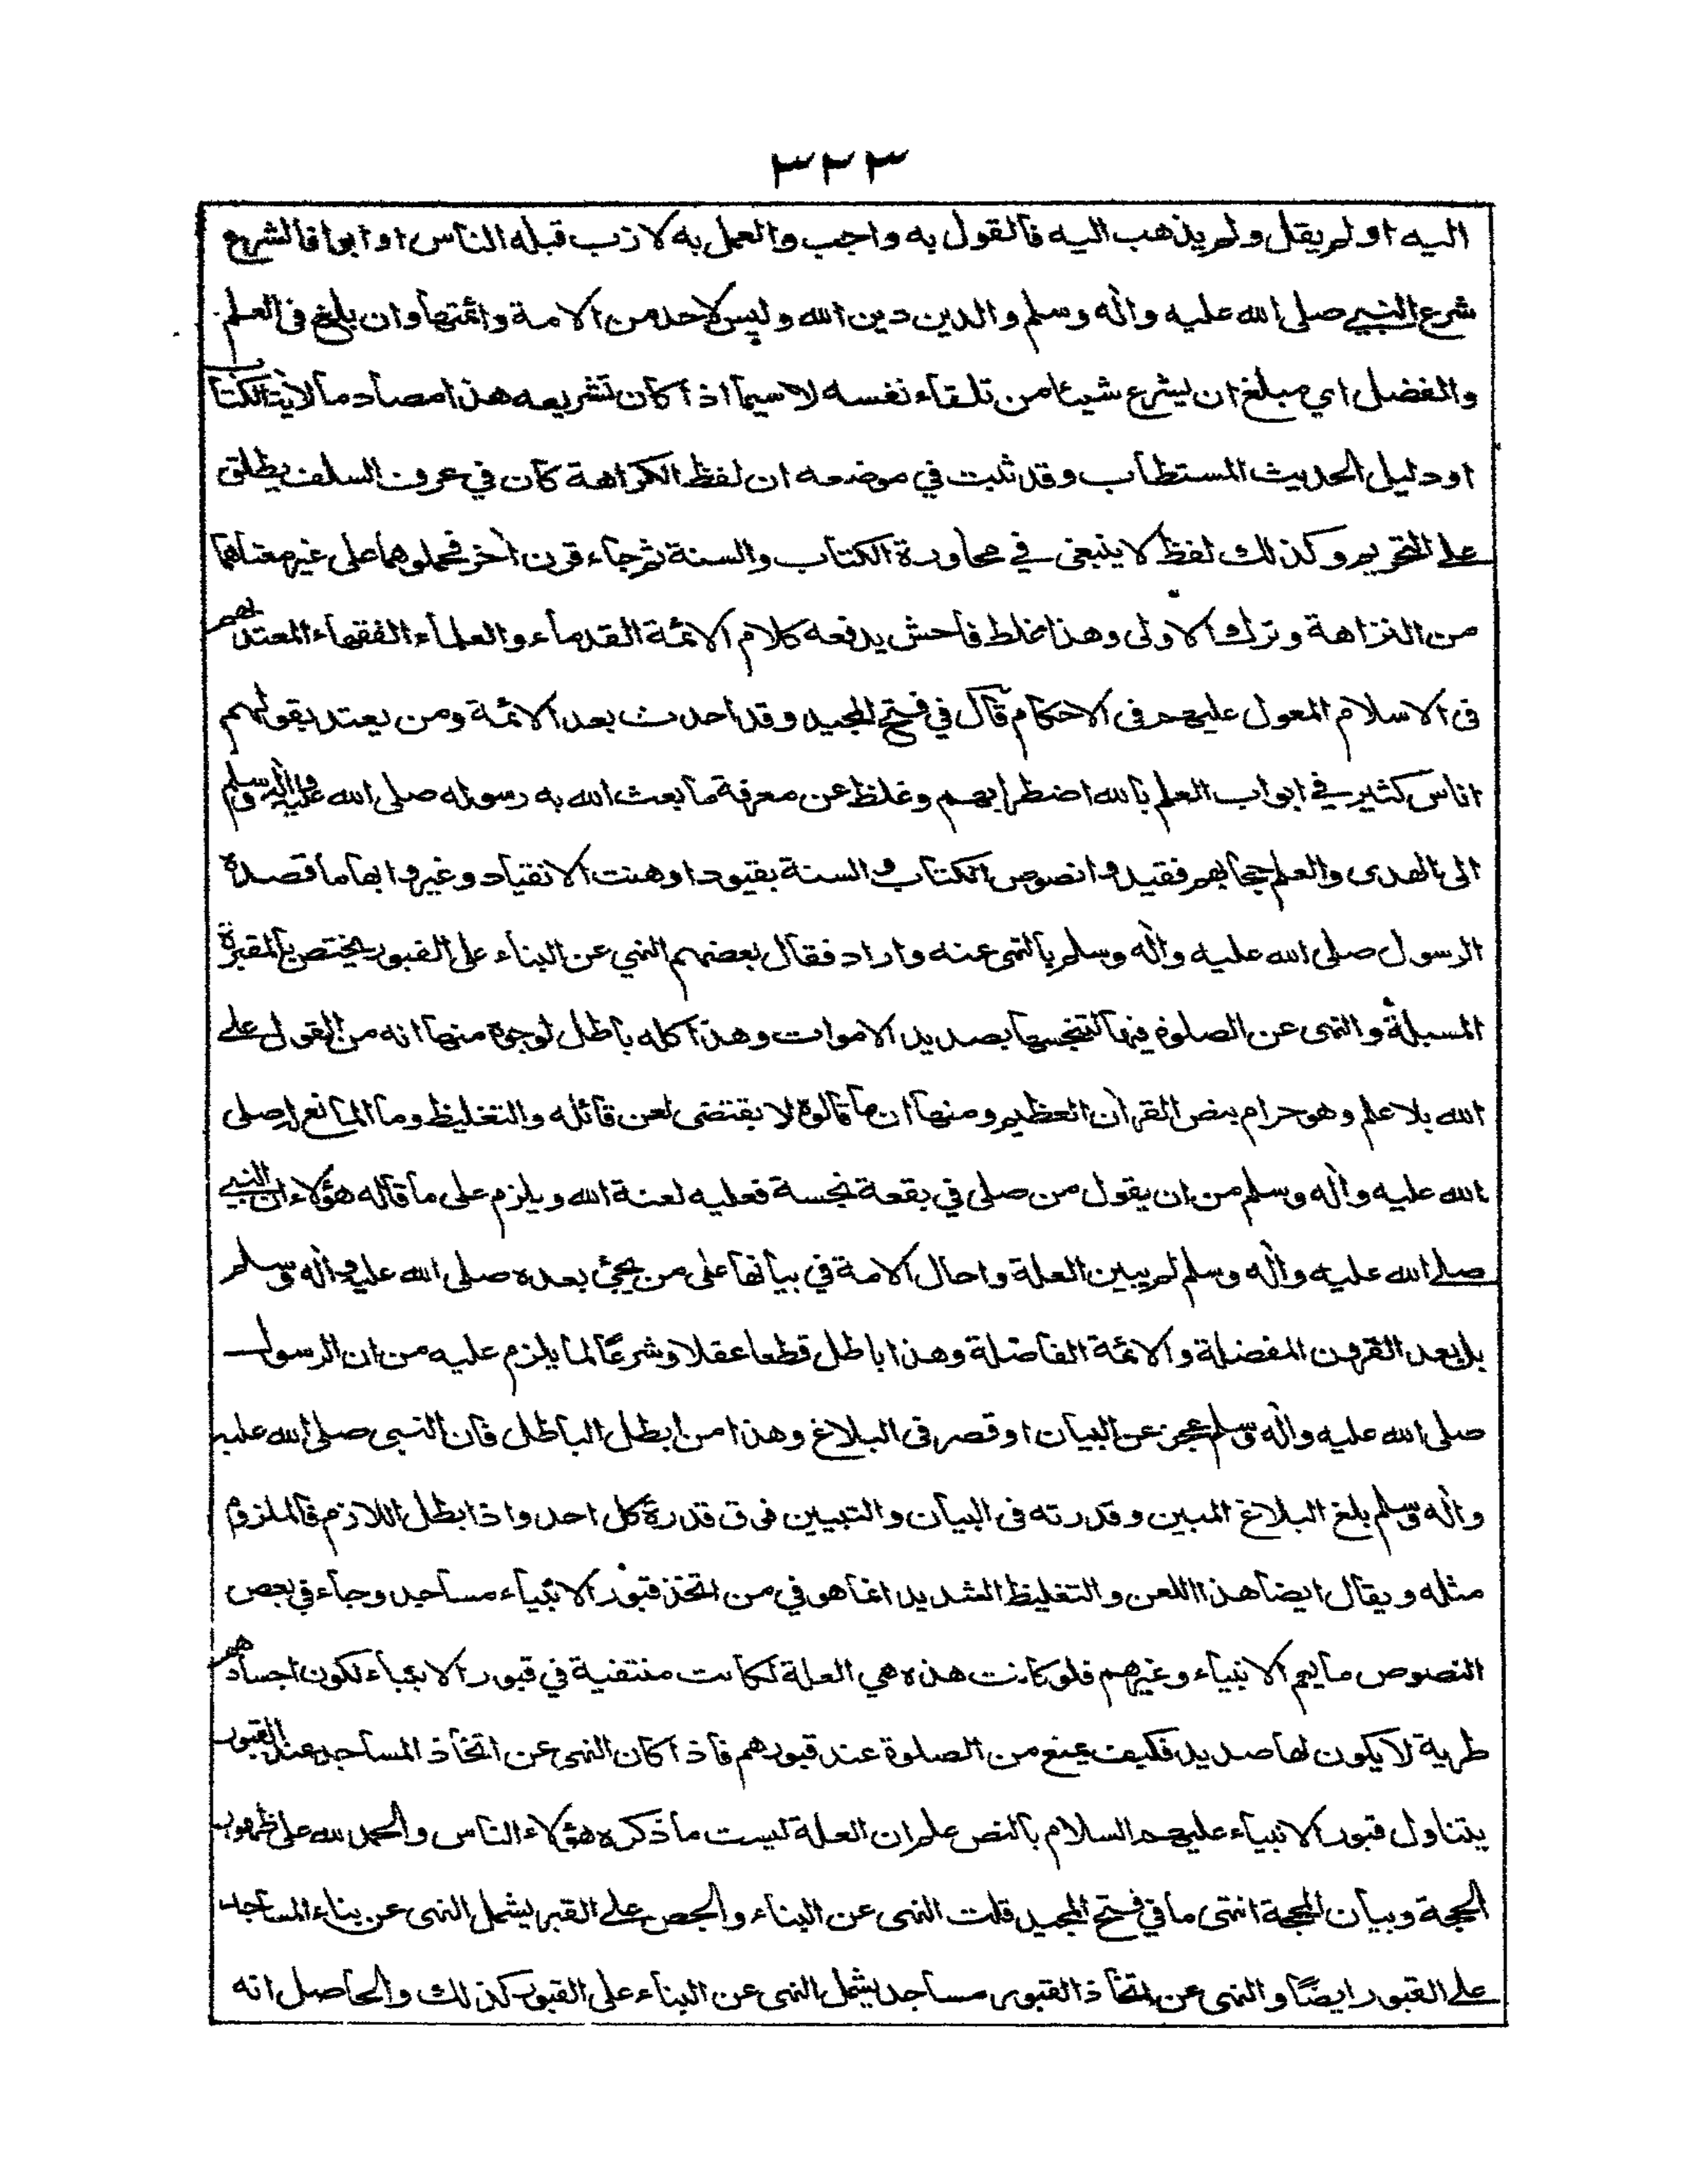 ٣٢٣
اليه او لم يقل ولم يذهب اليه فالقول به واجب والعمل به لازب قبله الناس او ابوا فالشرع
شرع النبي صلى الله عليه واٰله وسلم والدين دين الله وليس لاحد من الامة وائمتها وان بلغ فى العلم
والفضل اي مبلغ ان يشرع شيئا من تلقاء نفسه لا سيما اذا كان تشريعه هذا مصادما لاٰية الكتاب
او دليل الحديث المستطاب وقد ثبت في موضعه ان لفظ الكراهة كان في عرف السلف يطلق
على التحريم وكذلك لفظ لا ينبغى في محاورة الكتاب والسنة ثم جاء قرن اٰخر فحملوهما على غير معناهما
من النزاهة وترك الاولى وهذا غلط فاحش يدفعه كلام الائمة القدماء والعلماء الفقهاء المعتد بهم
فى الاسلام المعول عليهم فى الاحكام قال في فتح المجيد وقد احدث بعد الائمة ومن يعتد بقولهم
اناس كثير في ابواب العلم بالله اضطرابهم وغلظ عن معرفة ما بعث الله به رسوله صلى الله عليه واٰله وسلم
الى بالهدى والعلم حجابهم فقيدوا نصوص الكتاب والسنة بقيود اوهنت الانقياد وغيروا بها ما قصده
الرسول صلى الله عليه واٰله وسلم بالنهى عنه واراد فقال بعضهم النهي عن البناء على القبور يختص بالمقبرة
المسبلة والنهى عن الصلوة فيها لتنجسها بصديد الاموات وهذا كله باطل لوجوه منها انه من القول على
الله بلا علم وهو حرام بنص القراٰن العظيم ومنها ان ما قالوه لا يقتضى لعن قائله والتغليظ وما المانع له صلى
الله عليه واٰله وسلم من ان يقول من صلى في بقعة نجسة فعليه لعنة الله ويلزم على ما قاله هؤلاء ان النبي
صلى الله عليه واٰله وسلم لم يبين العلة واحال الامة في بيانها على من يجئ بعده صلى الله عليه واٰله وسلم
بل بعد القرون المفضلة والائمة الفاضلة وهذا باطل قطعا عقلا وشرعًا لما يلزم عليه من ان الرسول
صلى الله عليه واٰله وسلم عجز عن البيان او قصر فى البلاغ وهذا من ابطل الباطل فان النبى صلى الله عليه
واٰله وسلم بلغ البلاغ المبين وقدرته فى البيان والتبيين فوق قدرة كل احد واذا بطل اللازم فالملزوم
مثله ويقال ايضا هذا اللعن والتغليظ الشديد انما هو في من اتخذ قبور الانبياء مساجد وجاء في بعض
النصوص ما يعم الانبياء وغيرهم فلو كانت هذه هي العلة لكانت منتفية في قبور الانبياء لكون اجسادهم
طرية لا يكون لها صديد فكيف يمنع من الصلوة عند قبورهم فاذا كان النهى عن اتخاذ المساجد عند القبور
يتناول قبور الانبياء عليهم السلام بالنص علم ان العلة ليست ما ذكره هؤلاء الناس والحمد لله على ظهور
الحجة وبيان المحجة انتهى ما في فتح المجيد قلت النهى عن البناء والجص على القبر يشمل النهى عن بناء المساجد
على القبور ايضًا والنهى عن اتخاذ القبور مساجد يشمل النهى عن البناء على القبور كذلك والحاصل انه